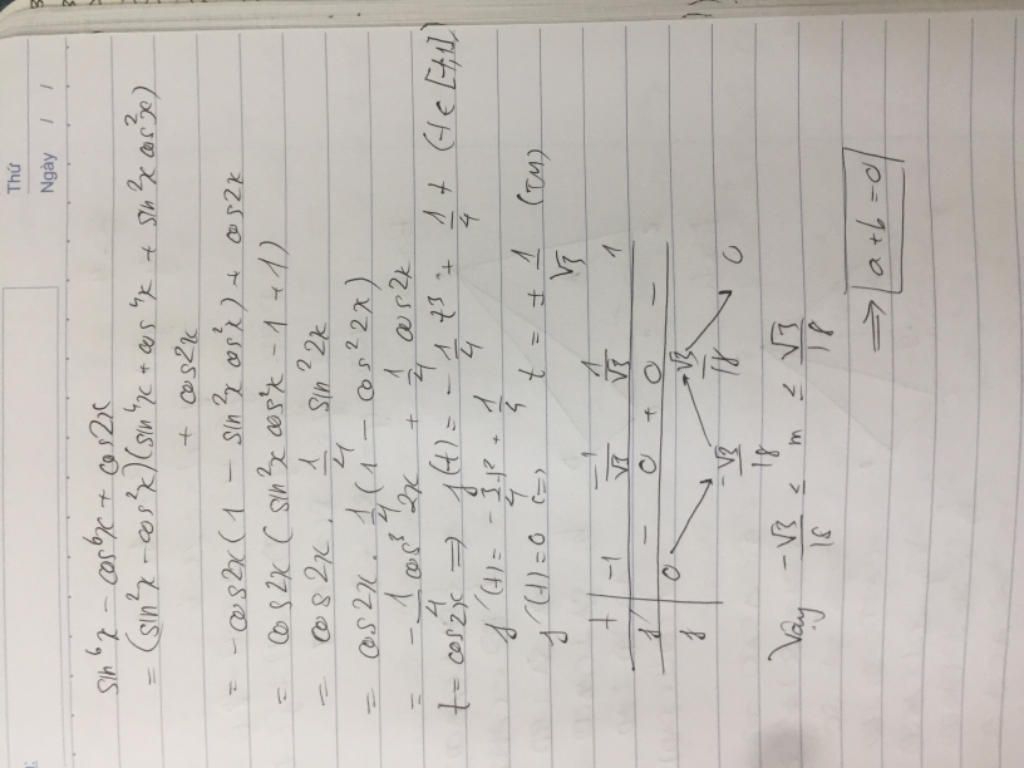 Thứ
Ngày / /
sin⁶x - cos⁶x + cos2x
= (sin²x - cos²x)(sin⁴x + cos⁴x + sin²x cos²x)
+ cos2x
= - cos2x(1 - sin²x cos²x) + cos2x
= cos2x (sin²x cos²x - 1 + 1)
= cos2x . 1/4 sin²2x
= cos2x . 1/4 (1 - cos²2x)
= - 1/4 cos³2x + 1/4 cos2x
t = cos2x ⇒ f(t) = - 1/4 t³ + 1/4 t (t ∈ [-1,1])
f'(t) = - 3/4 t² + 1/4
f'(t) = 0 <=> t = ± 1/√3 (TM)
t -1 -1/√3 1/√3 1
f' - 0 + 0 -
f 0 -√3/18 √3/18 0
Vậy -√3/18 ≤ m ≤ √3/18
⇒ a + b = 0